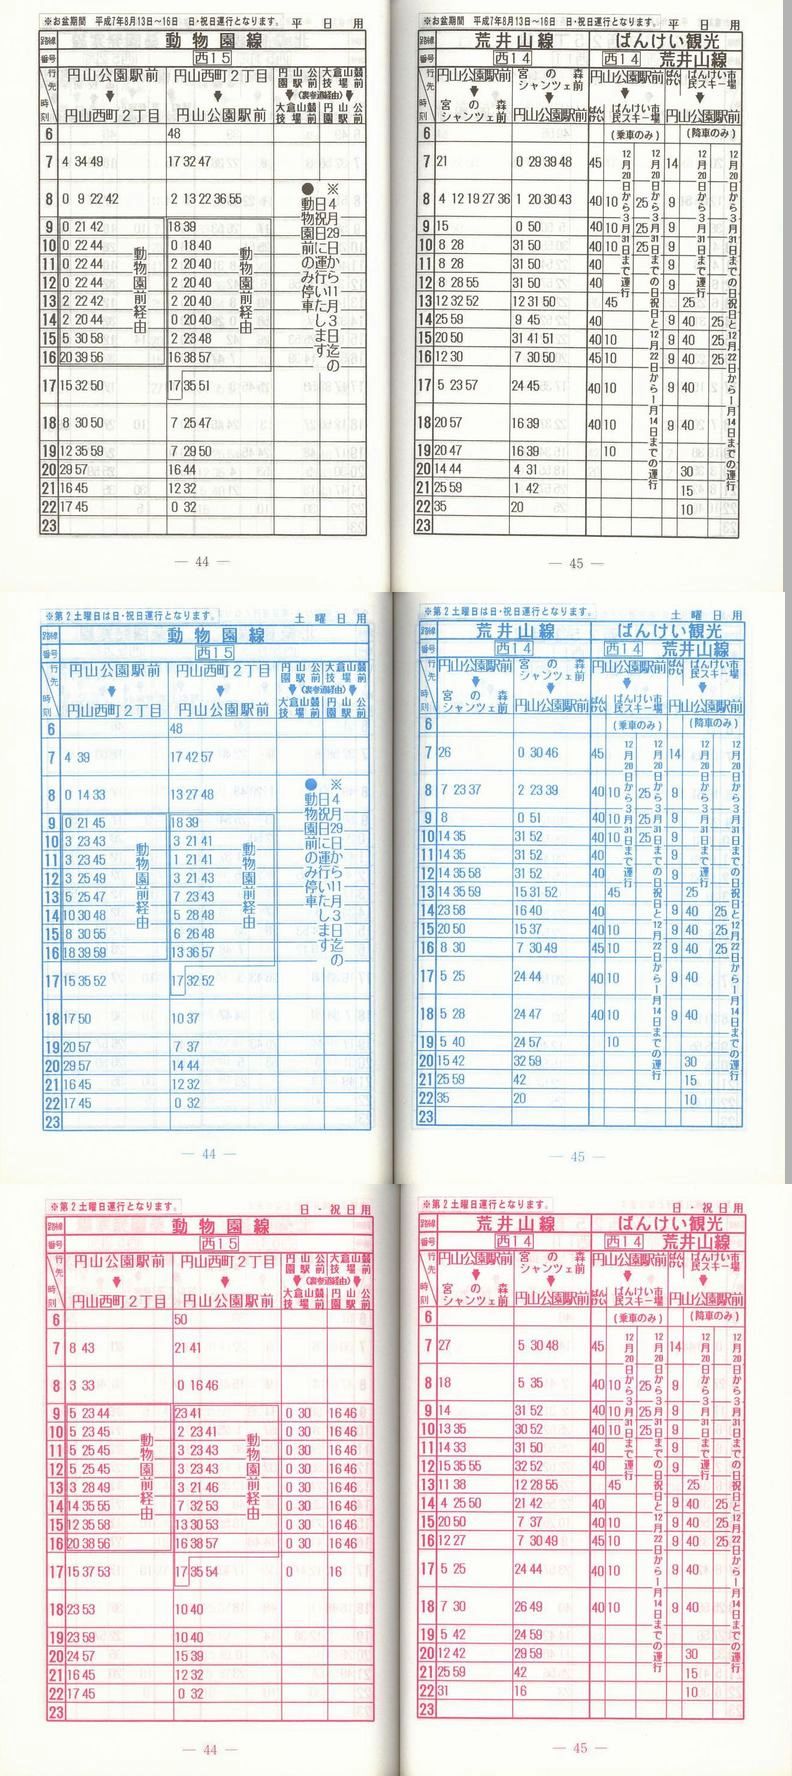 ※お盆期間 平成7年8月13日～16日 日・祝日運行となります。 平日用
路線 動物園線
番号 西15
行先 時刻
円山公園駅前 円山西町2丁目 円山公園駅前 大倉山競技場前
(裏参道経由)
円山西町2丁目 円山公園駅前 大倉山競技場前 円山公園駅前
6 48
7 4 34 49 17 32 47
8 0 9 22 42 2 13 22 36 55
9 0 21 42 18 39
10 0 22 44 0 18 40
11 0 22 44 2 20 40
12 0 22 44 2 20 40
13 2 22 42 2 20 40
14 2 20 44 0 20 40
15 5 30 58 2 23 48
16 20 39 56 16 38 57
17 15 32 50 17 35 51
18 8 30 50 7 25 47
19 12 35 59 7 29 50
20 29 57 16 44
21 16 45 12 32
22 17 45 0 32
23
動物園前経由
動物園前経由
※4月29日から11月3日迄の
日祝日に運行いたします
●動物園前のみ停車
— 44 —
※お盆期間 平成7年8月13日～16日 日・祝日運行となります。 平日用
路線 荒井山線 ばんけい観光
番号 西14 西14 荒井山線
行先 時刻
円山公園駅前 宮の森シャンツェ前 円山公園駅前 ばんけい ばんけい市民スキー場
宮の森シャンツェ前 円山公園駅前 ばんけい ばんけい市民スキー場 円山公園駅前
6 (乗車のみ) (降車のみ)
7 21 0 29 39 48 45 14
8 4 12 19 27 36 1 20 30 43 40 10 25 9
9 15 0 50 40 10 25 9
10 8 28 31 50 40 10 25 9
11 8 28 31 50 40 9
12 8 28 55 31 50 40 9
13 12 32 52 12 31 50 45 25
14 25 59 9 45 40 9 40 25
15 20 50 31 41 51 40 10 9 40 25
16 12 30 7 30 50 45 10 9 40 25
17 5 23 57 24 45 40 10 9 40
18 20 57 16 39 40 10 9 40
19 20 47 16 39 10
20 14 44 4 31 30
21 25 59 1 42 15
22 35 20 10
23
12月20日から3月31日まで運行
12月20日から3月31日までの日祝日と12月22日から1月14日までの運行
12月20日から3月31日まで運行
12月20日から3月31日までの日祝日と12月22日から1月14日までの運行
— 45 —
※第2土曜日は日・祝日運行となります。 土曜日用
路線 動物園線
番号 西15
行先 時刻
円山公園駅前 円山西町2丁目 円山公園駅前 大倉山競技場前
(裏参道経由)
円山西町2丁目 円山公園駅前 大倉山競技場前 円山公園駅前
6 48
7 4 39 17 42 57
8 0 14 33 13 27 48
9 0 21 45 18 39
10 3 23 43 3 21 41
11 3 23 45 1 21 41
12 3 25 49 3 21 43
13 5 25 47 7 23 43
14 10 30 48 5 28 48
15 8 30 55 6 26 48
16 18 39 59 13 36 57
17 15 35 52 17 32 52
18 17 50 10 37
19 20 57 7 37
20 29 57 14 44
21 16 45 12 32
22 17 45 0 32
23
動物園前経由
動物園前経由
※4月29日から11月3日迄の
日祝日に運行いたします
●動物園前のみ停車
— 44 —
※第2土曜日は日・祝日運行となります。 土曜日用
路線 荒井山線 ばんけい観光
番号 西14 西14 荒井山線
行先 時刻
円山公園駅前 宮の森シャンツェ前 円山公園駅前 ばんけい ばんけい市民スキー場
宮の森シャンツェ前 円山公園駅前 ばんけい ばんけい市民スキー場 円山公園駅前
6 (乗車のみ) (降車のみ)
7 26 0 30 46 45 14
8 7 23 37 2 23 39 40 10 25 9
9 8 0 51 40 10 25 9
10 14 35 31 52 40 10 25 9
11 14 35 31 52 40 9
12 14 35 58 31 52 40 9
13 14 35 59 15 31 52 45 25
14 23 58 16 40 40 9 40 25
15 20 50 15 37 40 10 9 40 25
16 8 30 7 30 49 45 10 9 40 25
17 5 25 24 44 40 10 9 40
18 5 28 24 47 40 10 9 40
19 5 40 24 57 10
20 15 42 32 59 30
21 25 59 42 15
22 35 20 10
23
12月20日から3月31日まで運行
12月20日から3月31日までの日祝日と12月22日から1月14日までの運行
12月20日から3月31日まで運行
12月20日から3月31日までの日祝日と12月22日から1月14日までの運行
— 45 —
※第2土曜日運行となります。 日・祝日用
路線 動物園線
番号 西15
行先 時刻
円山公園駅前 円山西町2丁目 円山公園駅前 大倉山競技場前
(裏参道経由)
円山西町2丁目 円山公園駅前 大倉山競技場前 円山公園駅前
6 50
7 8 43 21 41
8 3 33 0 16 46
9 5 23 44 23 41 0 30 16 46
10 5 23 45 2 23 41 0 30 16 46
11 5 25 45 3 23 43 0 30 16 46
12 5 25 45 3 23 43 0 30 16 46
13 3 28 49 3 21 46 0 30 16 46
14 14 35 55 7 32 53 0 30 16 46
15 12 35 58 13 30 53 0 30 16 46
16 20 38 56 16 38 57 0 30 16 46
17 15 37 53 17 35 54 0 16
18 23 53 10 40
19 23 59 10 40
20 24 57 15 39
21 16 45 12 32
22 17 45 0 32
23
動物園前経由
動物園前経由
— 44 —
※第2土曜日運行となります。 日・祝日用
路線 荒井山線 ばんけい観光
番号 西14 西14 荒井山線
行先 時刻
円山公園駅前 宮の森シャンツェ前 円山公園駅前 ばんけい ばんけい市民スキー場
宮の森シャンツェ前 円山公園駅前 ばんけい ばんけい市民スキー場 円山公園駅前
6 (乗車のみ) (降車のみ)
7 27 5 30 48 45 14
8 18 5 35 40 10 25 9
9 14 31 52 40 10 25 9
10 13 35 30 52 40 10 25 9
11 14 33 31 50 40 9
12 15 35 55 32 52 40 9
13 11 38 12 28 55 45 25
14 4 25 50 21 42 40 9 40 25
15 20 50 7 37 40 10 9 40 25
16 12 27 7 30 49 45 10 9 40 25
17 5 25 24 44 40 10 9 40
18 7 30 26 49 40 10 9 40
19 5 42 24 59 10
20 12 42 29 59 30
21 25 59 42 15
22 31 16 10
23
12月20日から3月31日まで運行
12月20日から3月31日までの日祝日と12月22日から1月14日までの運行
12月20日から3月31日まで運行
12月20日から3月31日までの日祝日と12月22日から1月14日までの運行
— 45 —